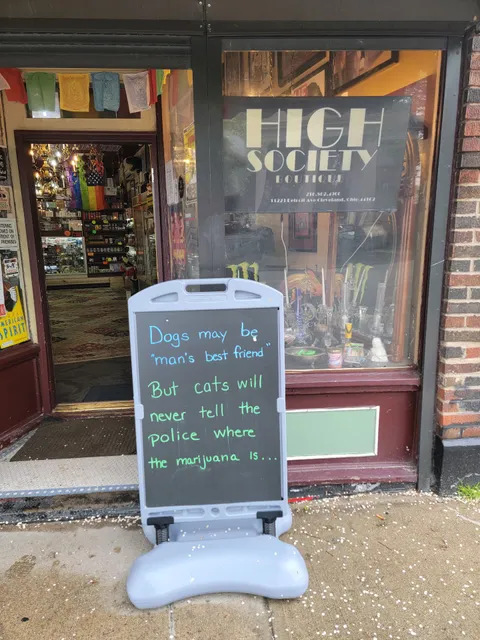 HIGH
SOCIETY
BOUTIQUE
Dogs may be
"man's best friend"
But cats will
never tell the
police where
the marijuana is...
AMERICAN
SPIRIT